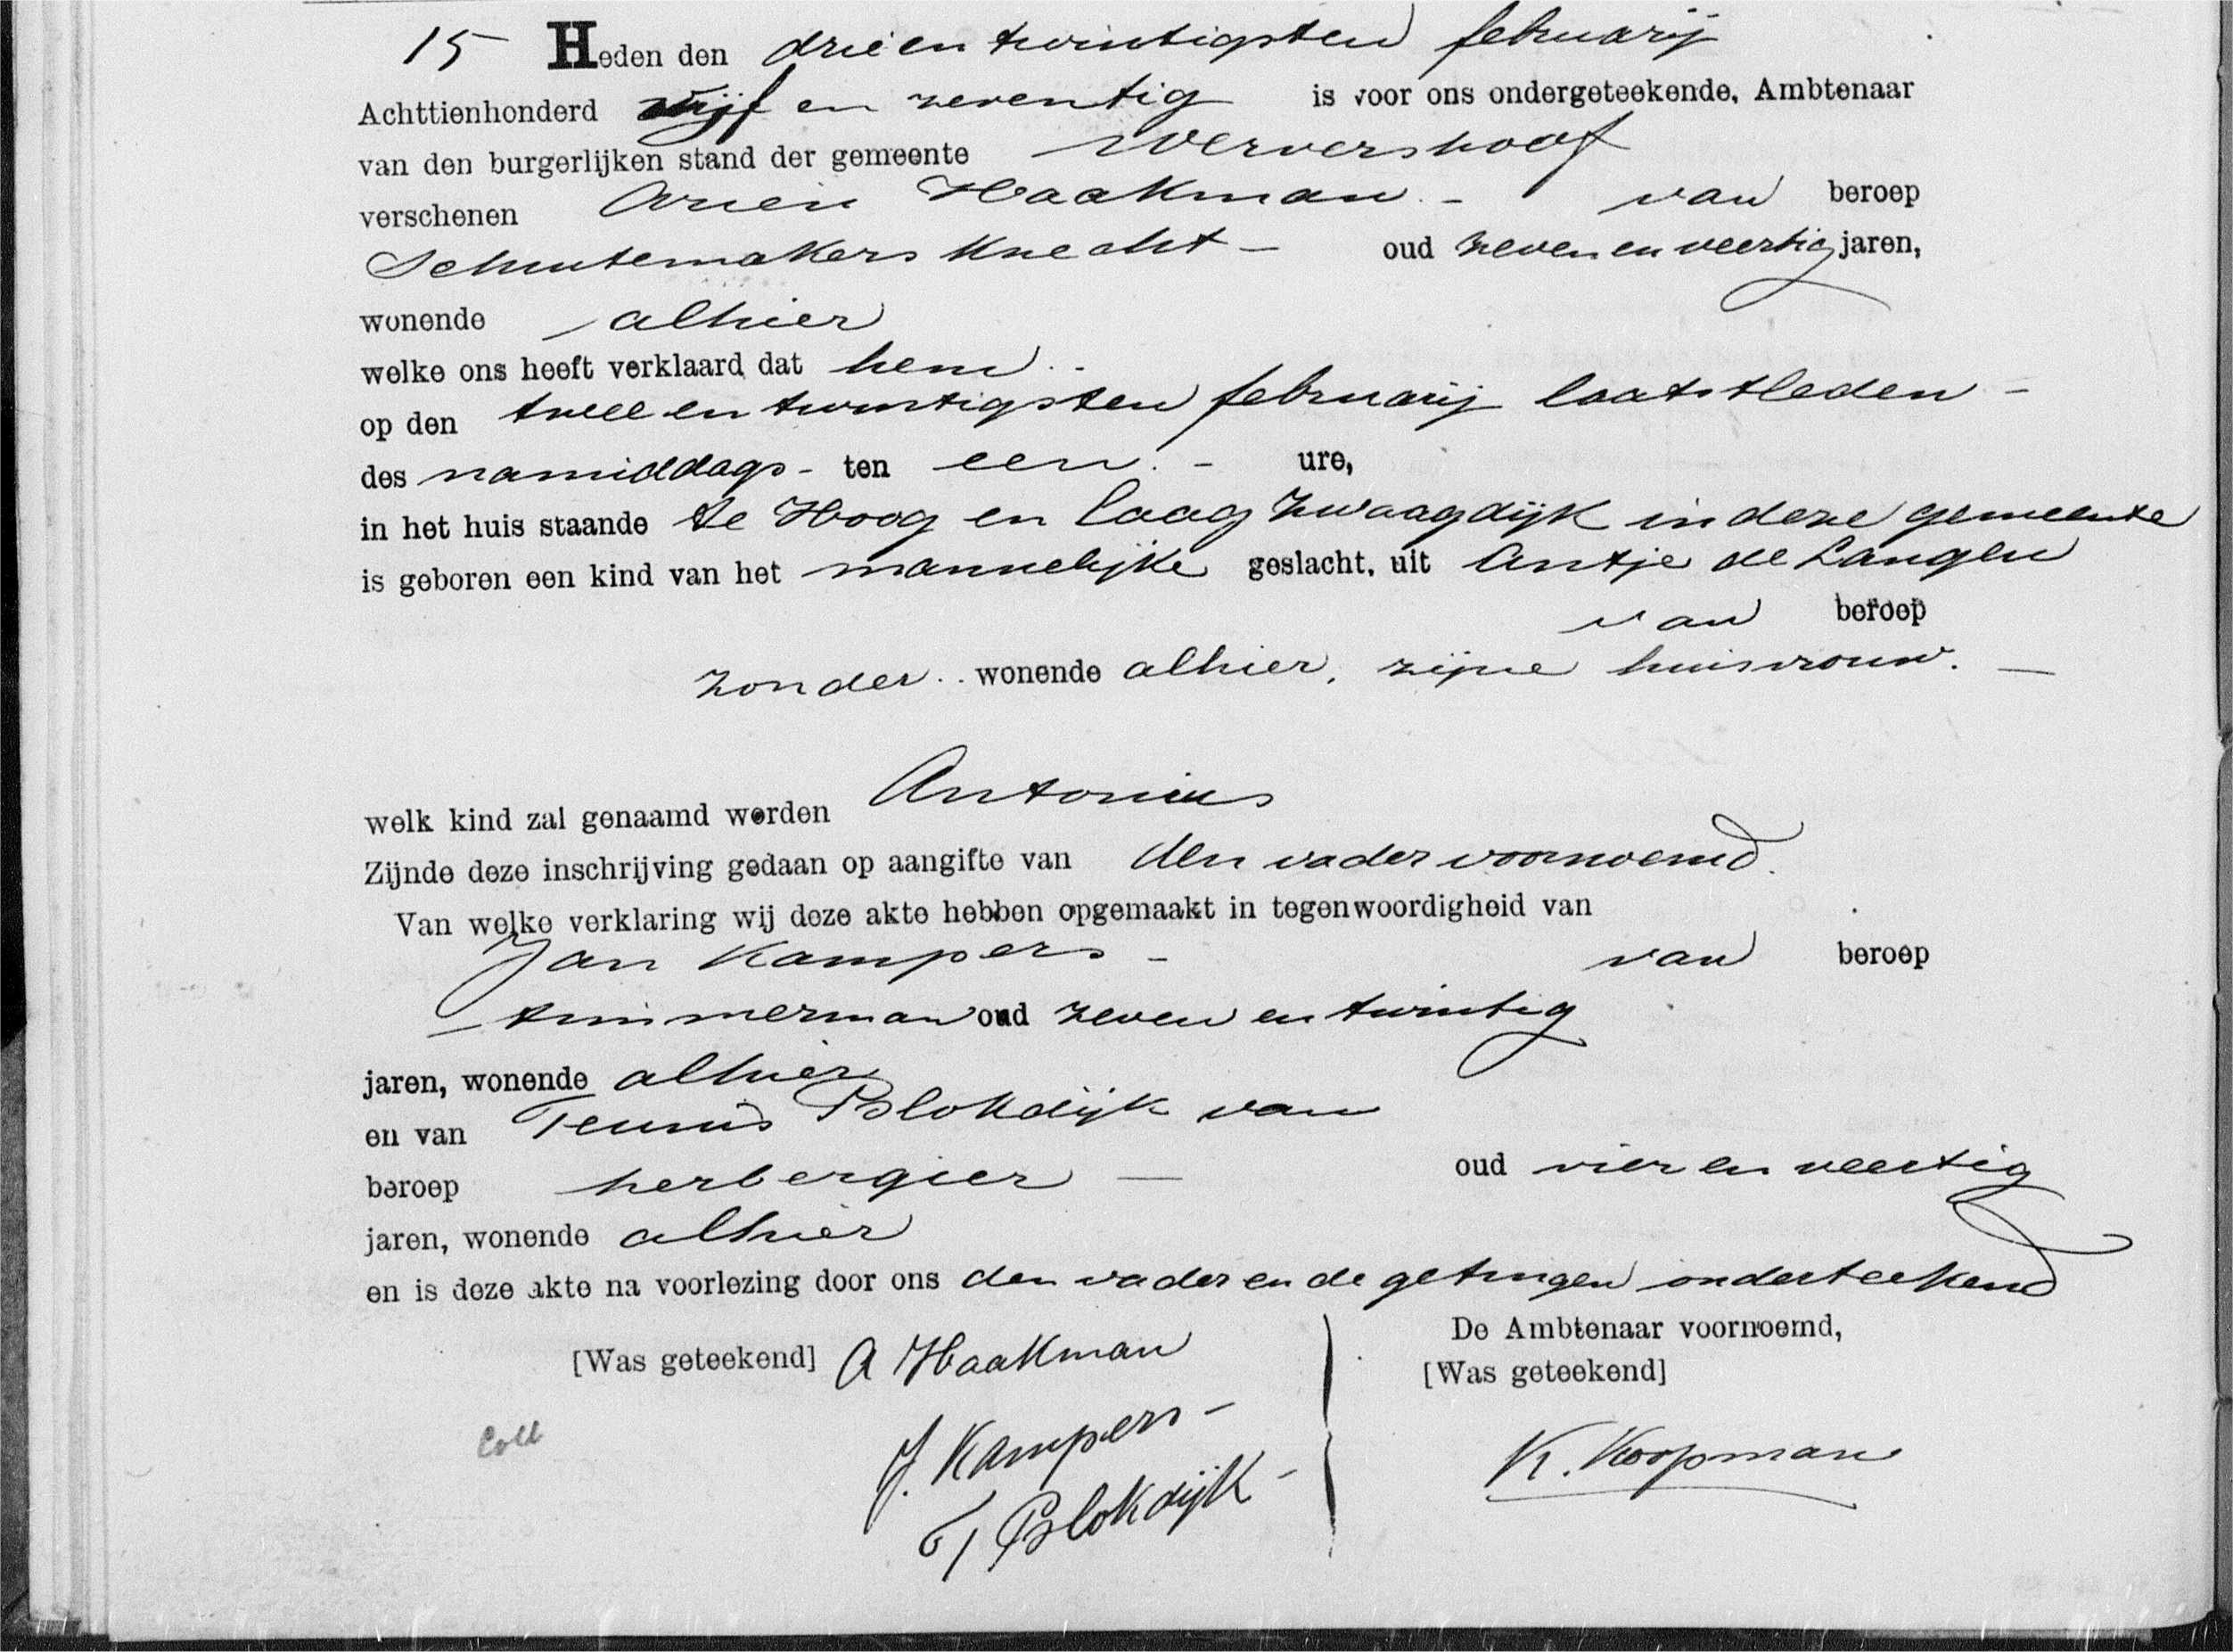 15 Heden den drieentwintigsten februarij
Achttienhonderd vijf en zeventig is voor ons ondergeteekende, Ambtenaar
van den burgerlijken stand der gemeente Wervershoof
verschenen Arien Haakman - van beroep
Schuitemakers Knecht - oud zeven en veertig jaren,
wonende alhier
welke ons heeft verklaard dat hem
op den twee en twintigsten februarij laatstleden -
des namiddags - ten een - ure,
in het huis staande te Hoog en Laag Zwaagdijk in deze gemeente
is geboren een kind van het mannelijke geslacht, uit Antje de Langen
van beroep
zonder wonende alhier, zijne huisvrouw. -
welk kind zal genaamd worden Antonius
Zijnde deze inschrijving gedaan op aangifte van den vader voornoemd.
Van welke verklaring wij deze akte hebben opgemaakt in tegenwoordigheid van
Jan Kampers - van beroep
- timmerman oud zeven en twintig
jaren, wonende alhier
en van Teunis Blokdijk van
beroep herbergier - oud vier en veertig
jaren, wonende alhier
en is deze akte na voorlezing door ons den vader en de getuigen onderteekend
De Ambtenaar voornoemd,
[Was geteekend] A Haakman [Was geteekend]
J. Kampers - K. Koopman
T Blokdijk -
Coll